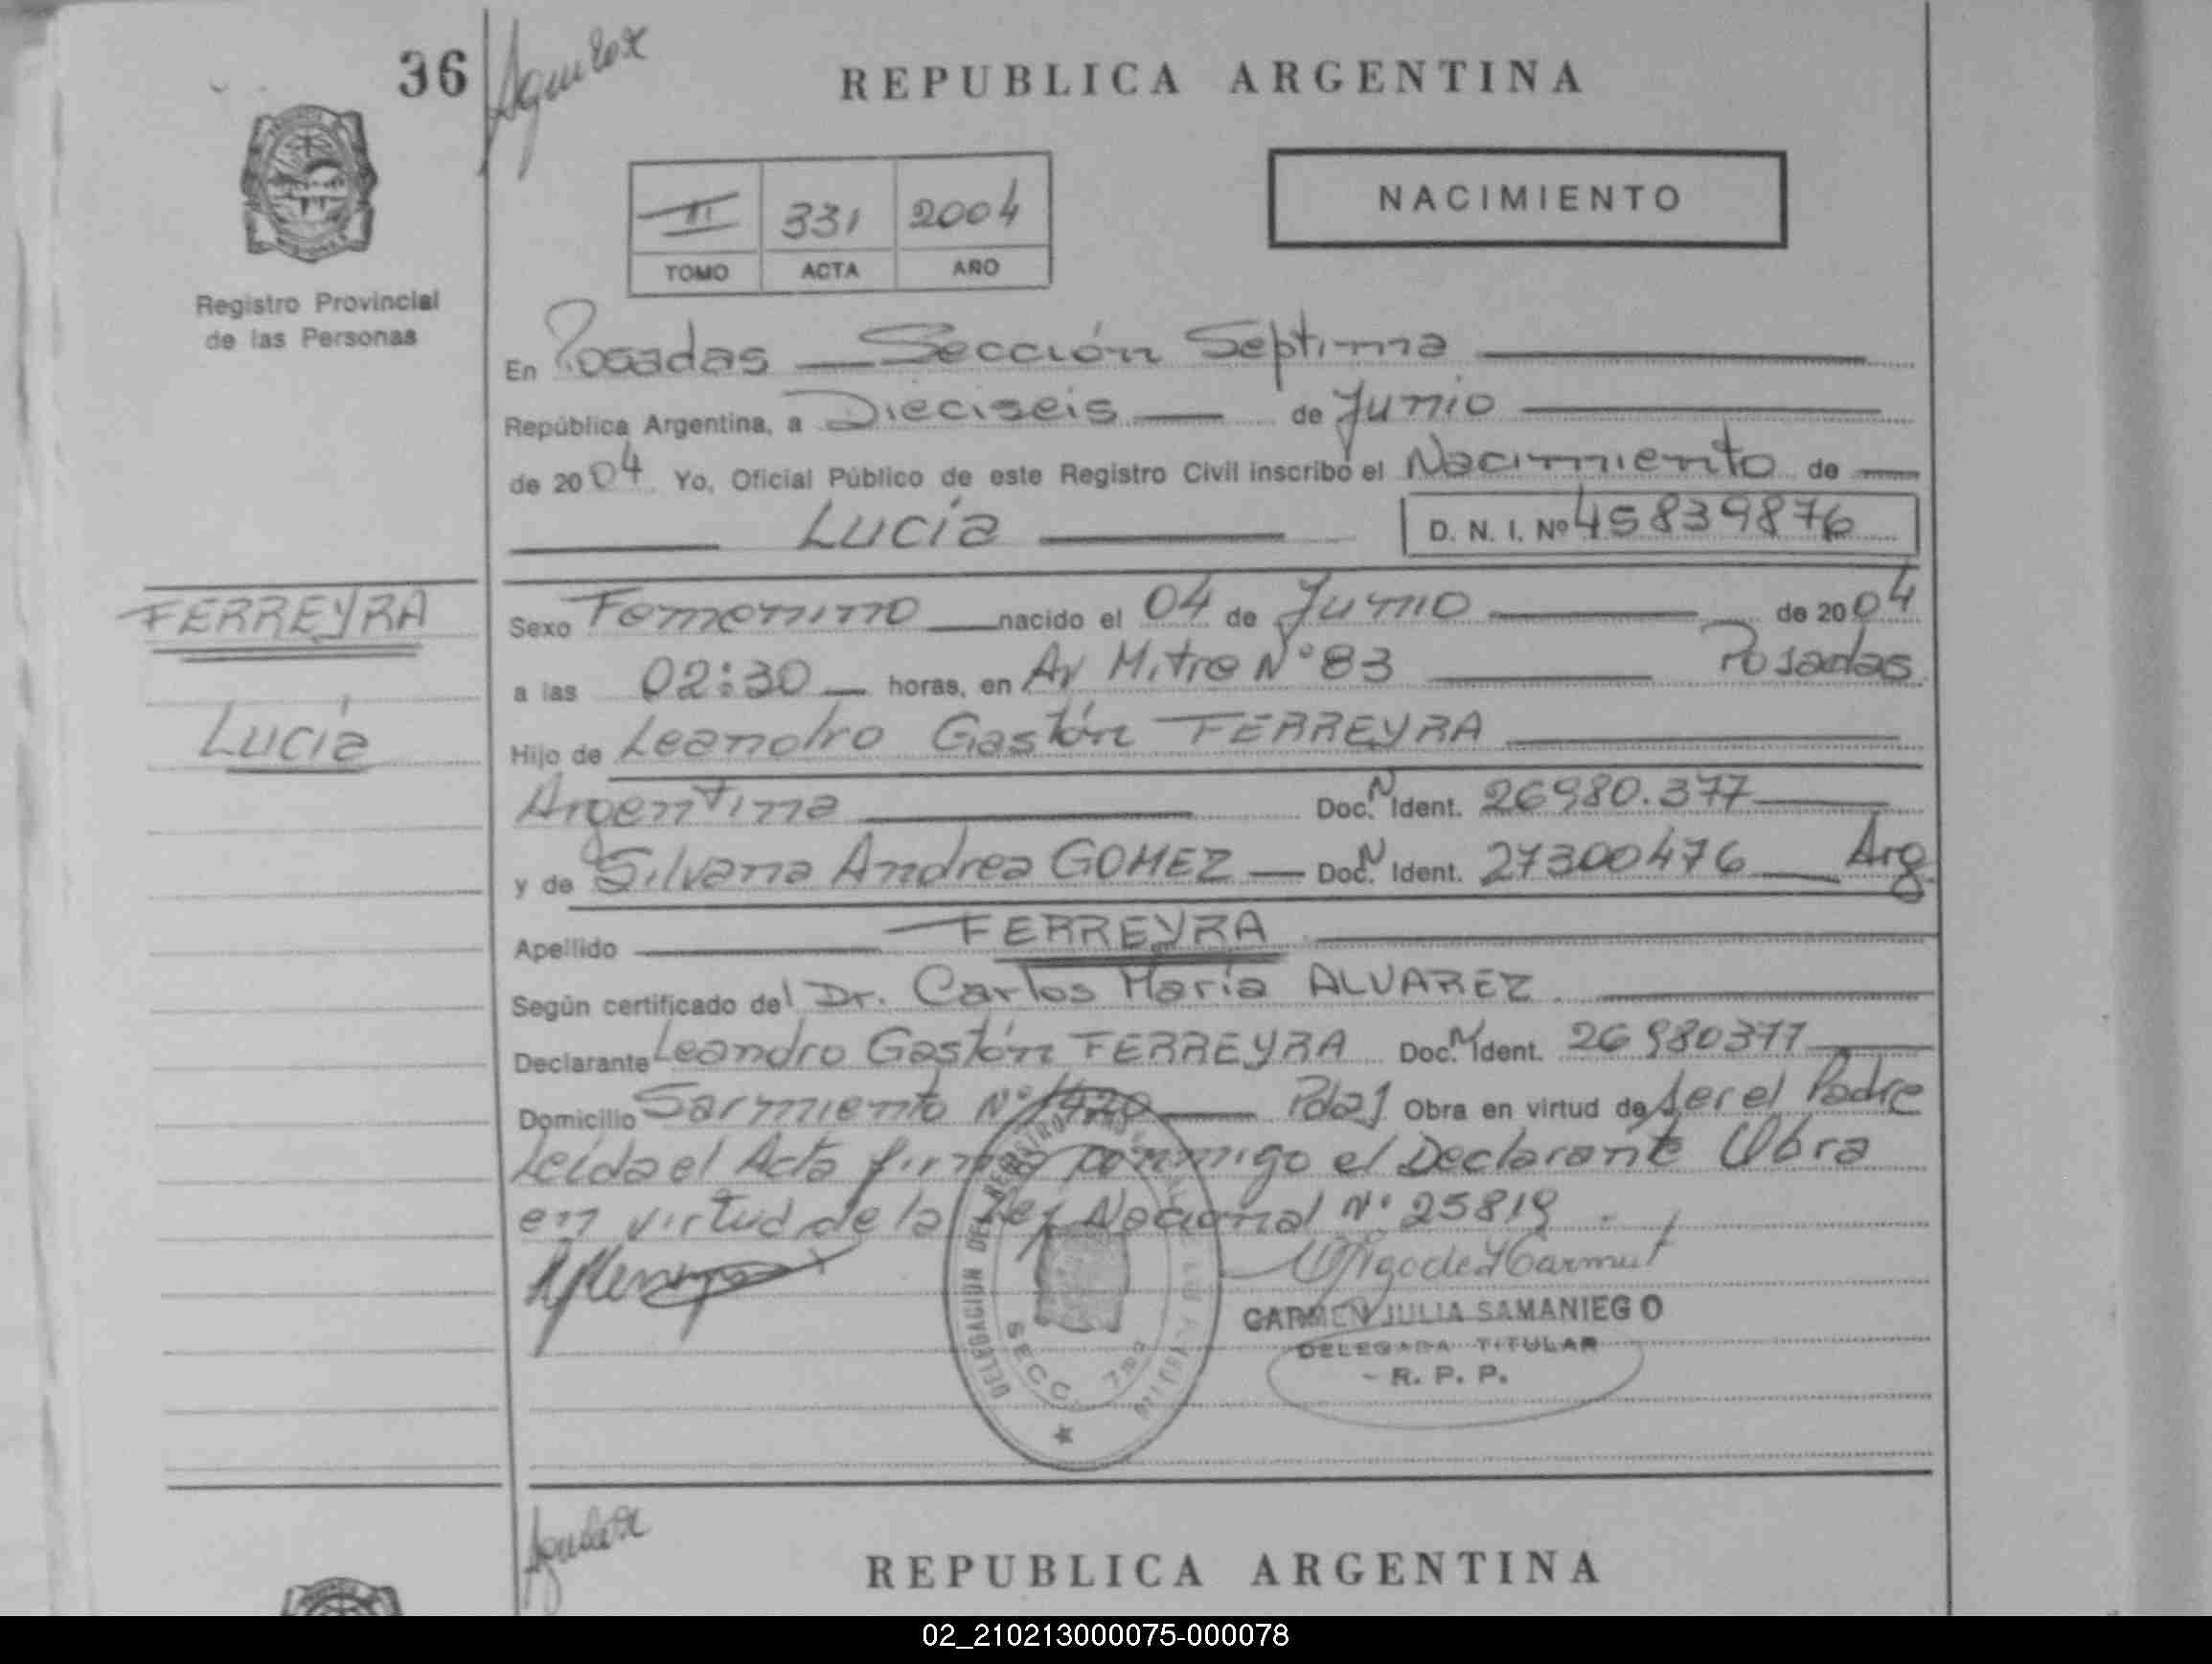 36
Aguilar
REPUBLICA ARGENTINA
III 331 2004
TOMO ACTA AÑO
NACIMIENTO
Registro Provincial
de las Personas
En Posadas — Sección Septima
República Argentina, a Dieciseis de Junio
de 2004 Yo, Oficial Público de este Registro Civil inscribo el Nacimiento de
Lucía D. N. I. Nº 45839876
FERREYRA
Lucía
Sexo Femenino nacido el 04 de Junio de 2004
a las 02:30 horas, en Av Mitre Nº 83 Posadas
Hijo de Leandro Gastón FERREYRA
Argentina Doc. N Ident. 26980.377
y de Silvana Andrea GOMEZ — Doc. N Ident. 27300476 Arg
Apellido FERREYRA
Según certificado del Dr. Carlos María ALVAREZ
Declarante Leandro Gastón FERREYRA Doc. N Ident. 26980377
Domicilio Sarmiento Nº Pdas Obra en virtud de ser el Padre
Leída el Acta firma conmigo el Declarante Obra
en virtud de la Ley Nacional Nº 25819
DELEGACION DEL REGISTRO
SECC. 7ma
CARMEN JULIA SAMANIEGO
DELEGADA TITULAR
R. P. P.
Aguilar
REPUBLICA ARGENTINA
02_210213000075-000078